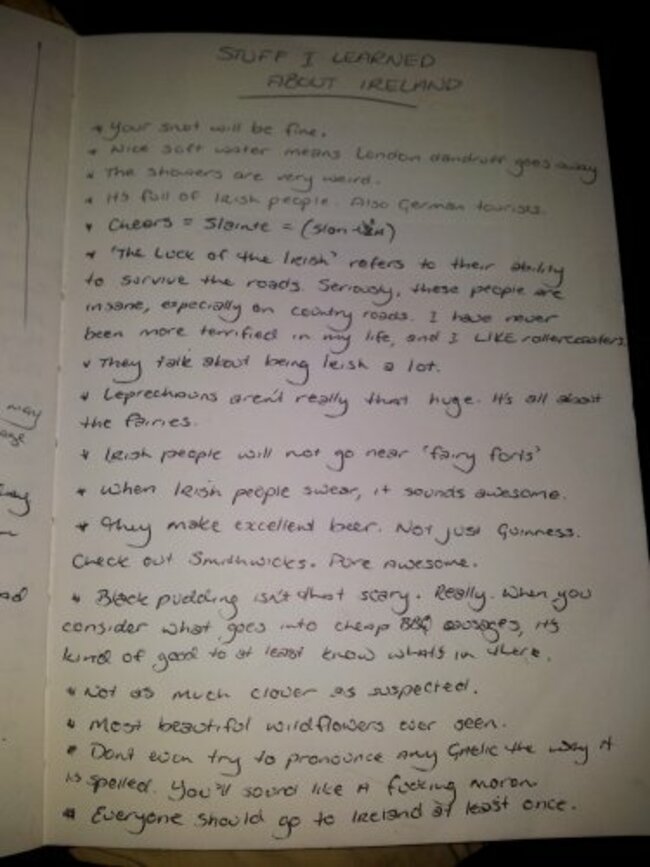 STUFF I LEARNED
ABOUT IRELAND
* Your snot will be fine.
* Nice soft water means London dandruff goes away
* The showers are very weird.
* It's full of Irish people. Also German tourists.
* Cheers = Slainte =
* 'The Luck of the Irish' refers to their ability
to survive the roads. Seriously, these people are
insane, especially on country roads. I have never
been more terrified in my life, and I LIKE rollercoasters.
* They talk about being Irish a lot.
* Leprechauns aren't really that huge. It's all about
the fairies.
* Irish people will not go near 'fairy forts'
* When Irish people swear, it sounds awesome.
* They make excellent beer. Not just Guinness.
Check out Smithwicks. Pure Awesome.
* Black pudding isn't that scary. Really. When you
consider what goes into cheap BBQ sausages, it's
kind of good to at least know what's in there.
* Not as much clover as suspected.
* Most beautiful wildflowers ever seen.
* Don't even try to pronounce any Gaelic the way it
is spelled. You'll sound like A fucking moron
* Everyone should go to Ireland at least once.
may